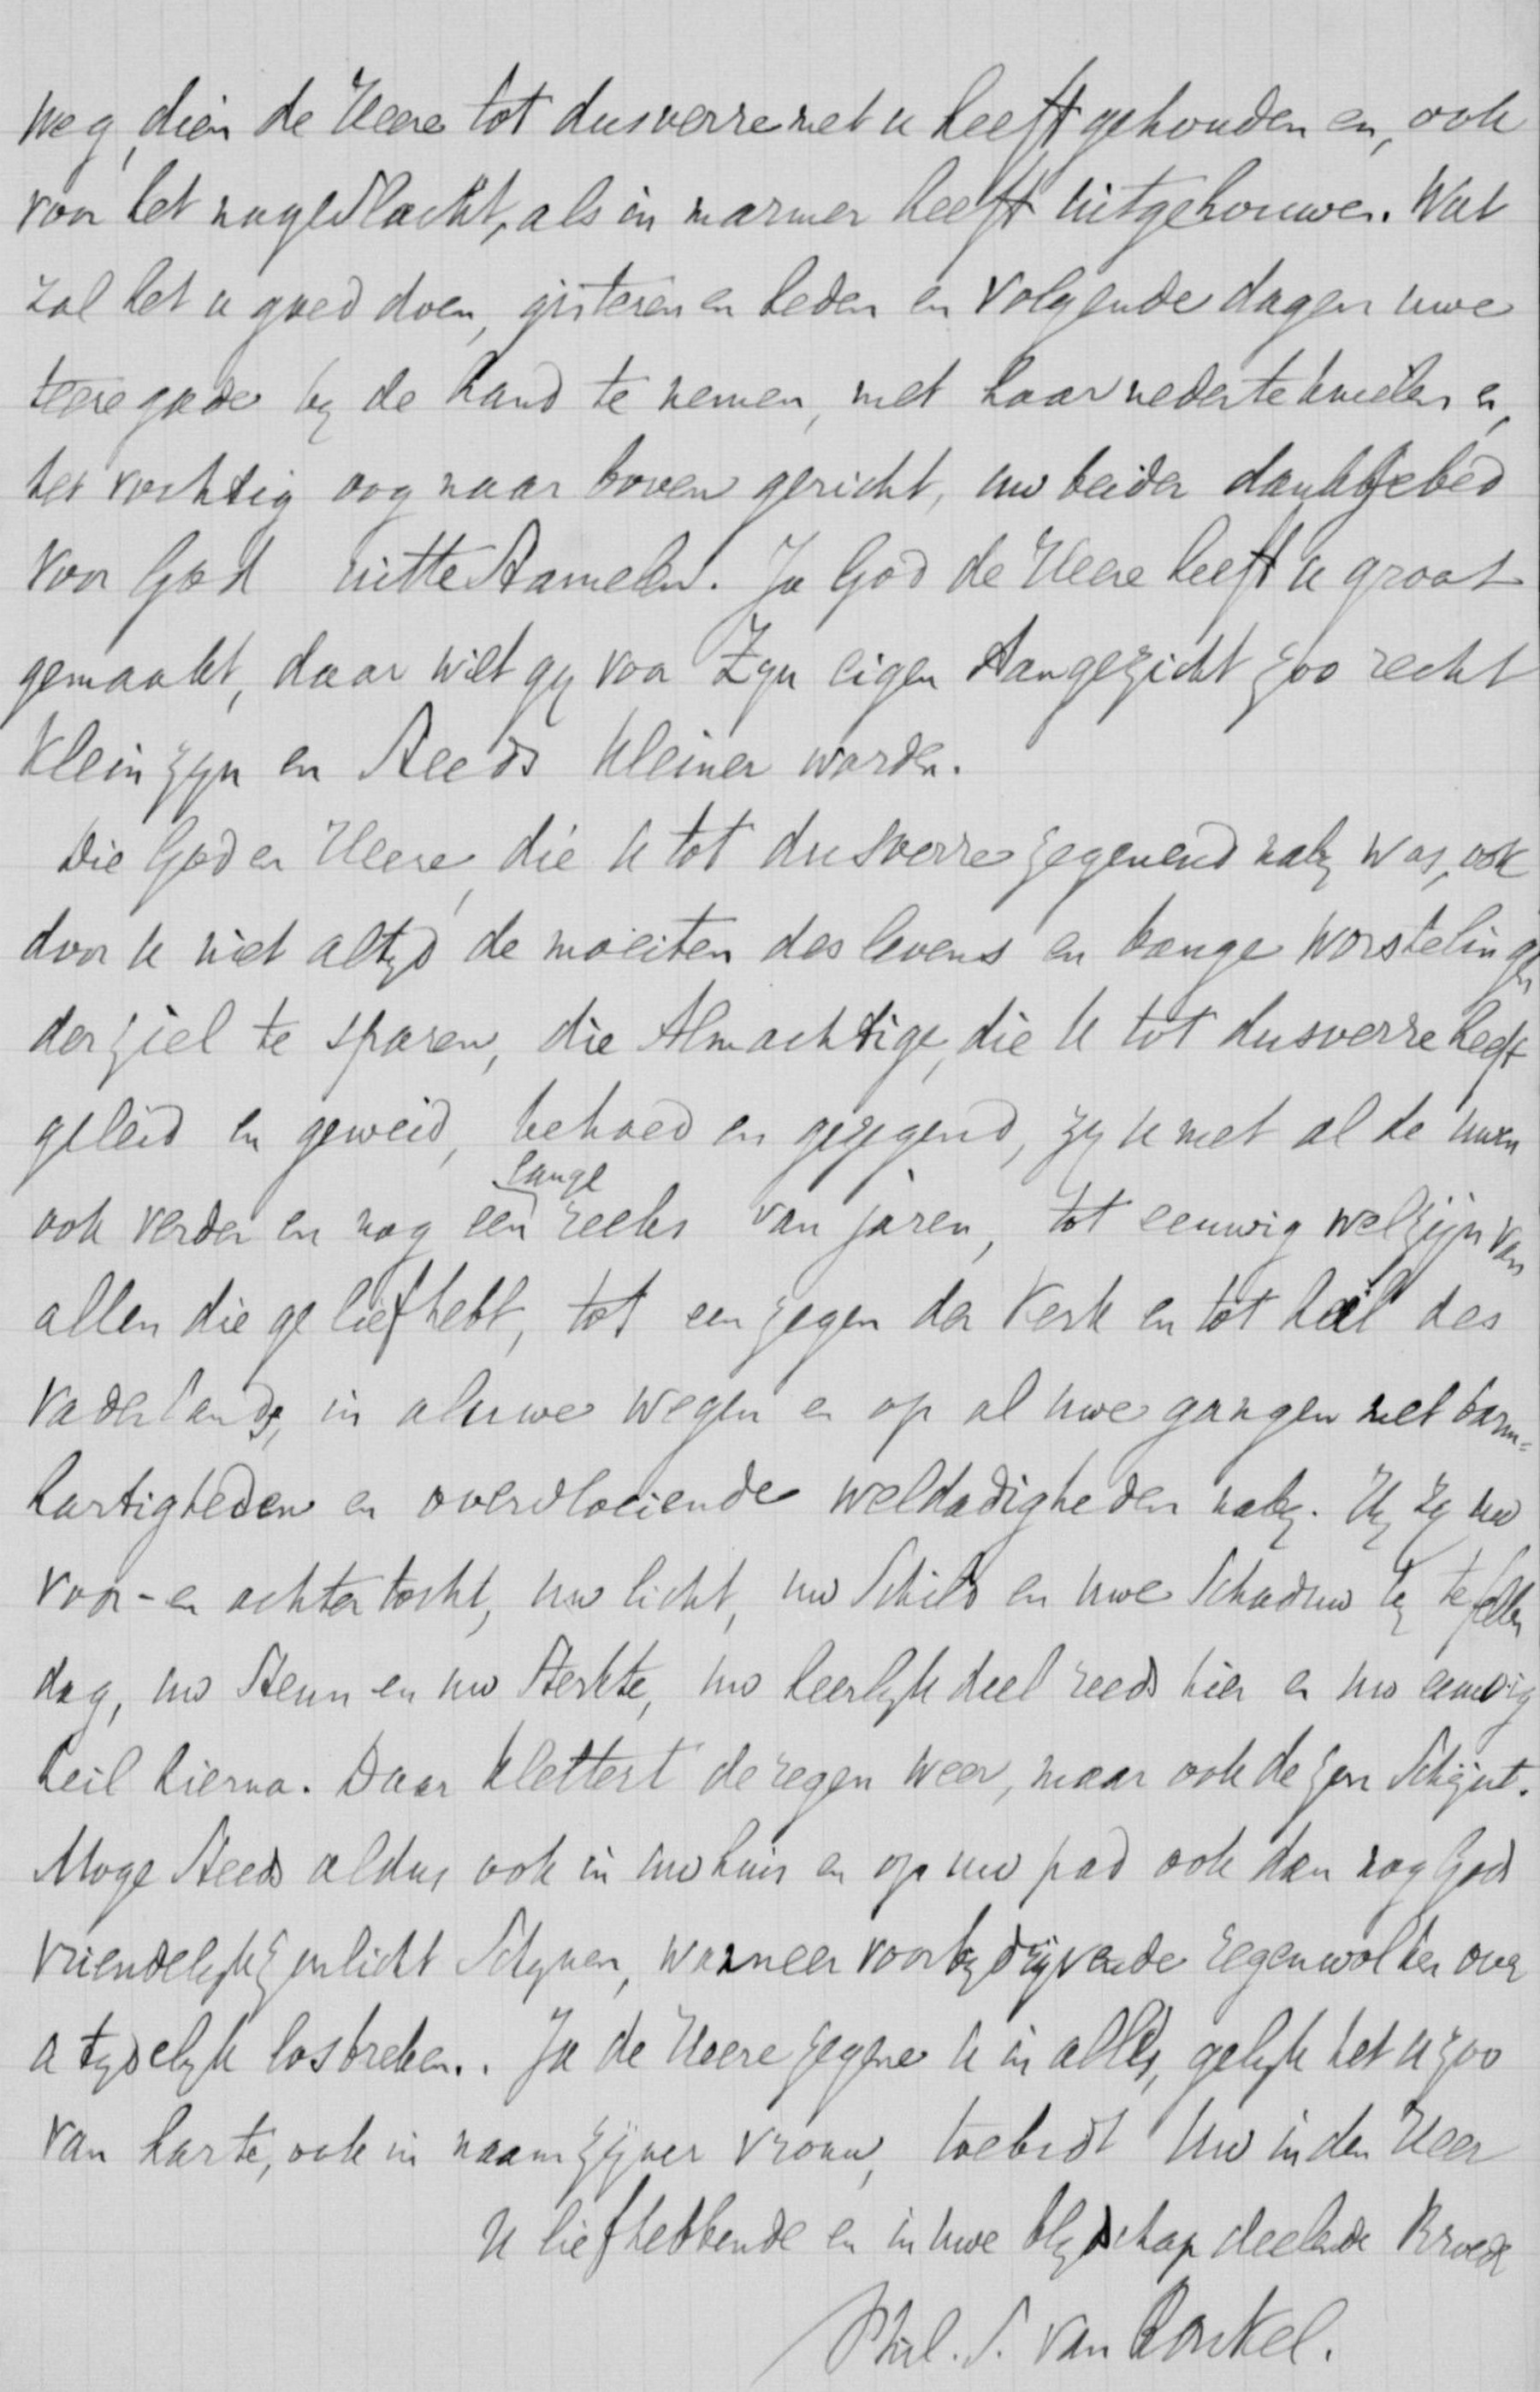 weg, dien de Heere tot dusverre met u heeft gehouden en, ook
voor het nageslacht, als in marmer heeft uitgehouwen. Wat
zal het u goed doen, gisteren en heden en volgende dagen uwe
teere gade by de hand te nemen, met haar neder te knielen en,
het vochtig oog naar boven gericht, uw beider dankgebed
voor God uitte stamelen. Ja God de Heere heeft u groot
gemaakt, daar wilt gy voor Zyn eigen Aangezicht zoo recht
klein zyn en steeds kleiner worden.
Die God en Heere, die U tot dusverre zegenend naby was, ook
door U niet altyd de moeiten des levens en bange worstelingen
der ziel te sparen, die Almachtige, die U tot dusverre heeft
geleid en geweid, behoed en gezegend, zy U met al de uwen
ook verder en nog een lange reeks van jaren, tot eeuwig welzijn van
allen die ge liefhebt, tot een zegen der Kerk en tot heil des
Vaderlands, in al uwe wegen en op al uwe gangen met barm=
hartigheden en overvloeiende weldadigheden naby. Hy zy uw
voor- en achtertocht, uw licht, uw Schild en uwe Schaduw by te fellen
dag, uw Steun en uw Sterkte, uw heerlyk deel reeds hier en uw eeuwig
heil hierna. Daar klettert de regen weer, maar ook de zon Schijnt.
Moge Steeds aldus ook in uw huis en op uw pad ook dan nog Gods
vriendelyk zonlicht Schynen, wanneer voorbydryvende regenwolken over
u tydelyk losbreken.. Ja de Heere zegene U in alles, gelyk het U zoo
van harte, ook in naam zijner vrouw, toebidt Uw in den Heer
U liefhebbende en in uwe blydschap deelende Broeder
Phil. S. van Ronkel.